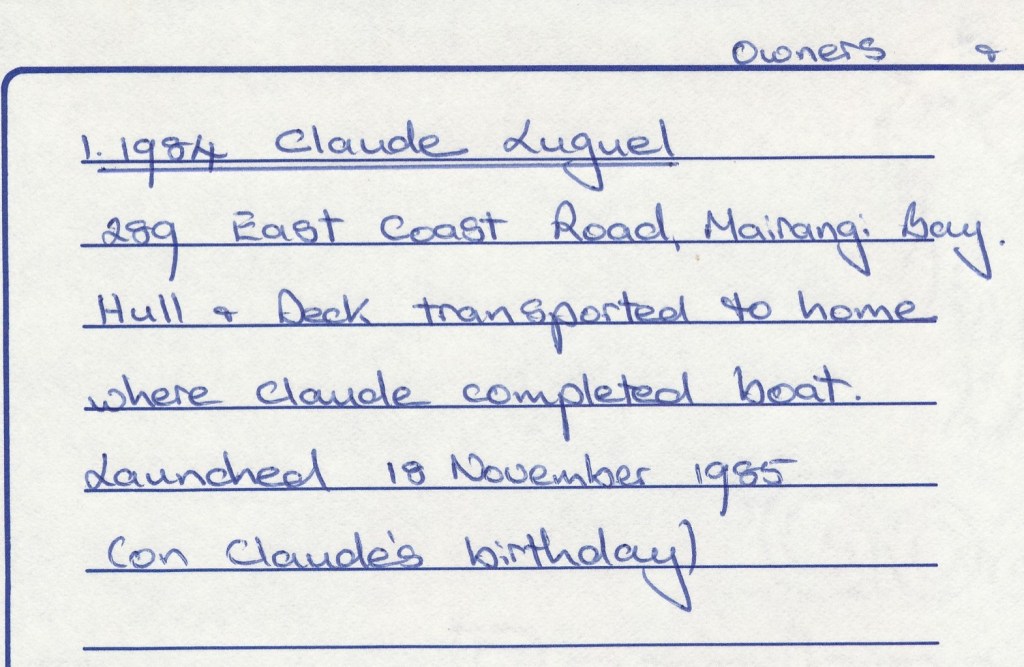 Owners &
1. 1984 Claude Luguel
289 East Coast Road, Mairangi Bay.
Hull & Deck transported to home
where Claude completed boat.
Launched 18 November 1985
(on Claude's birthday)